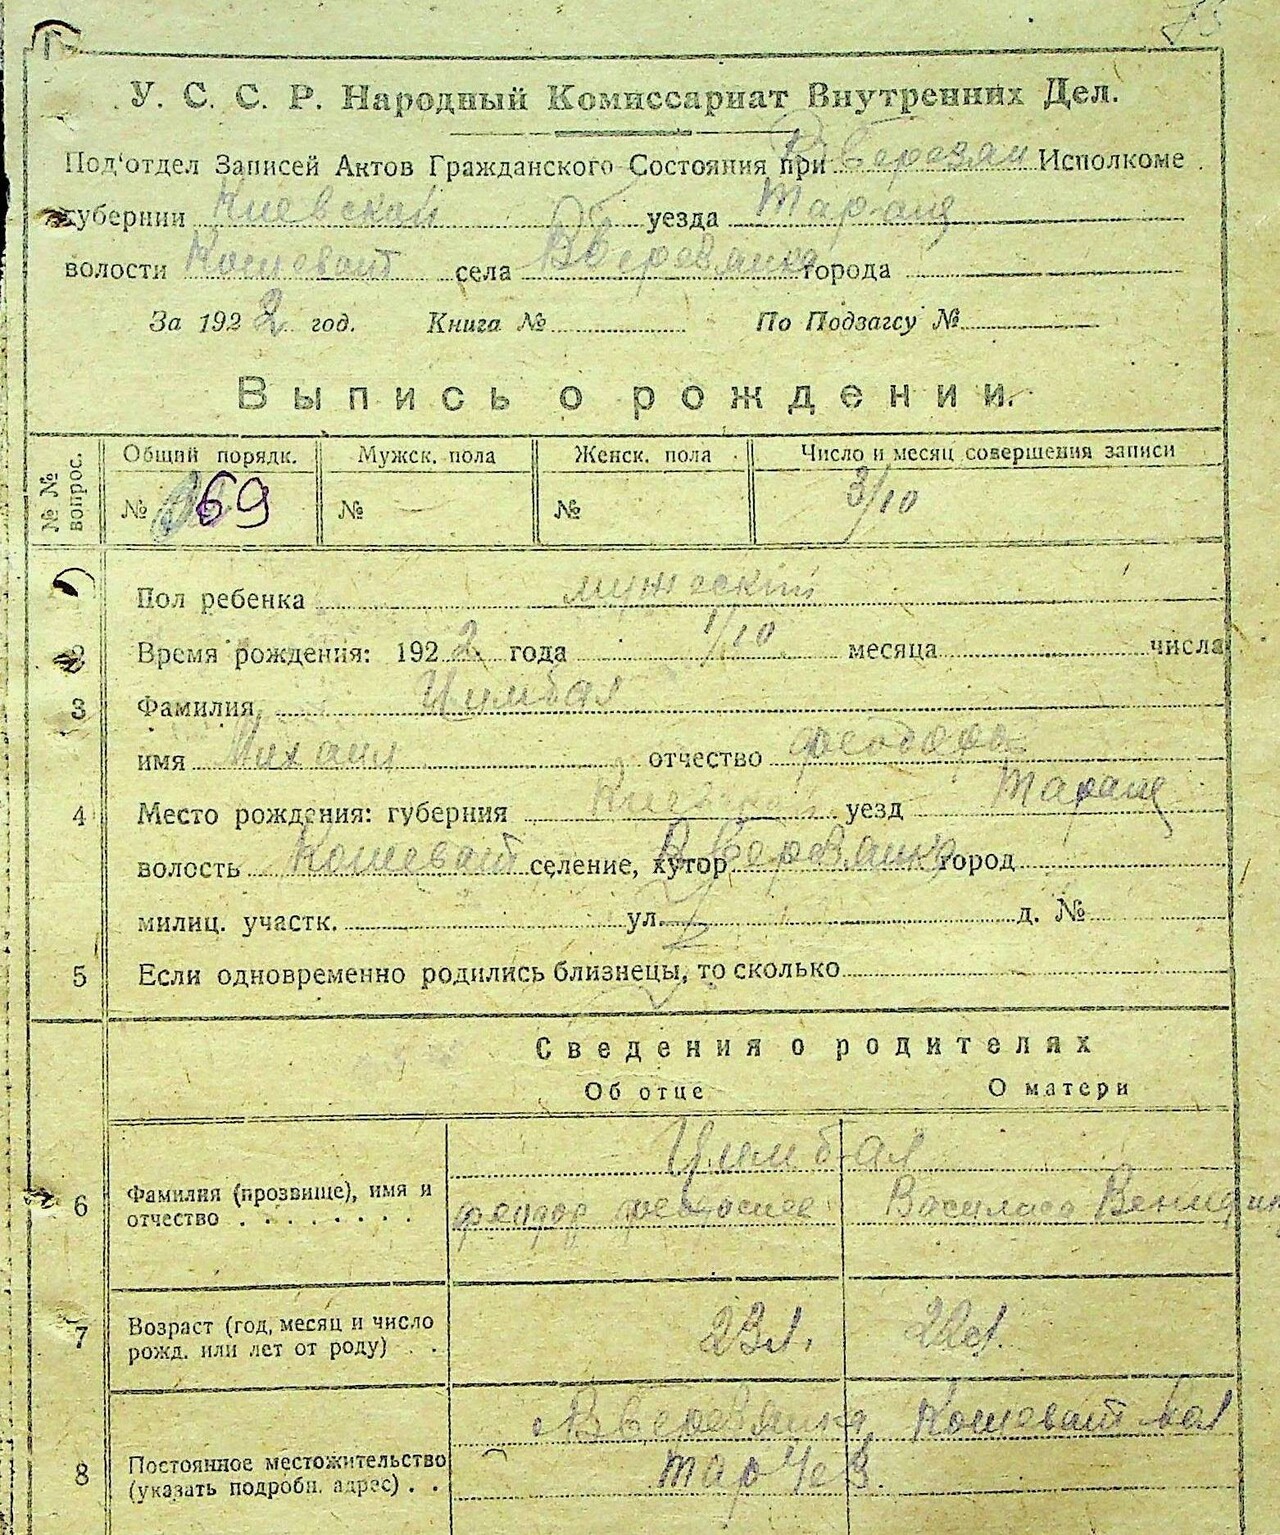 У. С. С. Р. Народный Комиссариат Внутренних Дел.
Под'отдел Записей Актов Гражданского Состояния при Исполкоме
губернии Киевской уезда Таращ
волости Кошеват села города
За 1922 год. Книга № По Подзагсу №
Выпись о рождении.
№№ вопрос. Общий порядк. Мужск. пола Женск. пола Число и месяц совершения записи
№ 69 № — № 3/10
Пол ребенка мужеский
2 Время рождения: 1922 года 1/10 месяца числа
3 Фамилия Цимбал
имя Михаил отчество Феодоров
4 Место рождения: губерния Киевской уезд Таращ
волость Кошеват селение, хутор город
милиц. участк. ул. д. №
5 Если одновременно родились близнецы, то сколько
Сведения о родителях
Об отце О матери
Цимбал
6 Фамилия (прозвище), имя и отчество Феодор Василиса
7 Возраст (год, месяц и число рожд. или лет от роду) 23 л. 22 л.
Кошеват вол
8 Постоянное местожительство (указать подробн. адрес) Тар